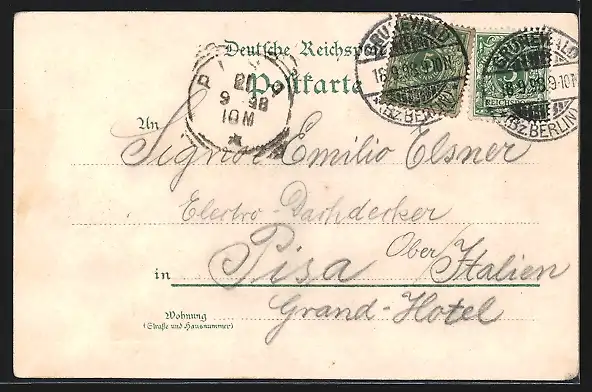 Deutsche Reichspost
Postkarte
GRUNEWALD
18.9.98.9-10N.
*(BZ BERLIN)*
5
GRUNEWALD
18.9.98.9-10N.
*(BZ BERLIN)
5
REICHSPOST
PISA
20
9 98
10M
An
Signor Emilio Elsner
Electro-Dachdecker
in
Pisa Ober/Italien
Wohnung
(Straße und Hausnummer)
Grand-Hotel